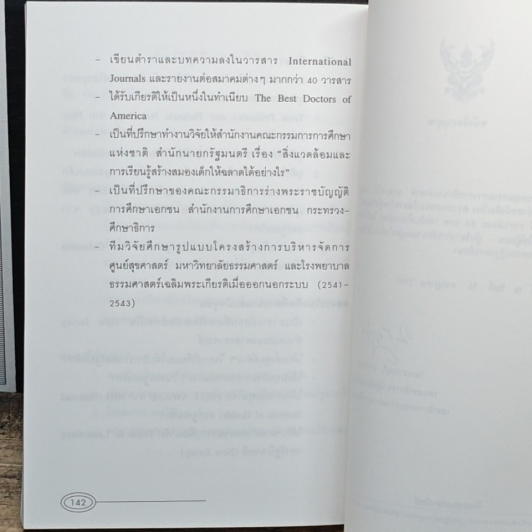 - เขียนตำราและบทความลงในวารสาร International
Journals และรายงานต่อสมาคมต่างๆ มากกว่า 40 วารสาร
- ได้รับเกียรติให้เป็นหนึ่งในทำเนียบ The Best Doctors of
America
- เป็นที่ปรึกษาทำงานวิจัยให้สำนักงานคณะกรรมการการศึกษา
แห่งชาติ สำนักนายกรัฐมนตรี เรื่อง "สิ่งแวดล้อมและ
การเรียนรู้สร้างสมองเด็กให้ฉลาดได้อย่างไร"
- เป็นที่ปรึกษาของคณะกรรมาธิการร่างพระราชบัญญัติ
การศึกษาเอกชน สำนักงานการศึกษาเอกชน กระทรวง-
ศึกษาธิการ
- ทีมวิจัยศึกษารูปแบบโครงสร้างการบริหารจัดการ
ศูนย์สุขศาสตร์ มหาวิทยาลัยธรรมศาสตร์ และโรงพยาบาล
ธรรมศาสตร์เฉลิมพระเกียรติเมื่อออกนอกระบบ (2541-
2543)
142